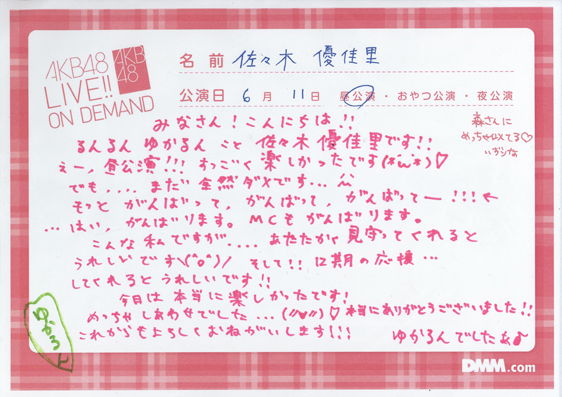 AKB48
LIVE!!
ON DEMAND
AKB
48
名前 佐々木 優佳里
公演日 6月 11日 昼公演・おやつ公演・夜公演
みなさん!こんにちは!!
るんるん ゆかるん こと 佐々木 優佳里です!!
えー,昼公演!!! すっごく 楽しかったです(*´ω`*)♡
でも.... まだ 全然ダメです...
もっと がんばって, がんばって, がんばってー!!!←
...はい, がんばります。 MCもがんばります。
こんな 私ですが.... あたたかく 見守ってくれると
うれしいです\(^o^)/ そして!! 12期の応援...
してくれるとうれしいです!!
今日は 本当に 楽しかったです!
めっちゃ しあわせでした...(//∀//)♡ 本当にありがとうございました!!
これからもよろしくおねがいします!!!
ゆかるんでしたぁ♪
森さんに
ゆかるん
DMM.com